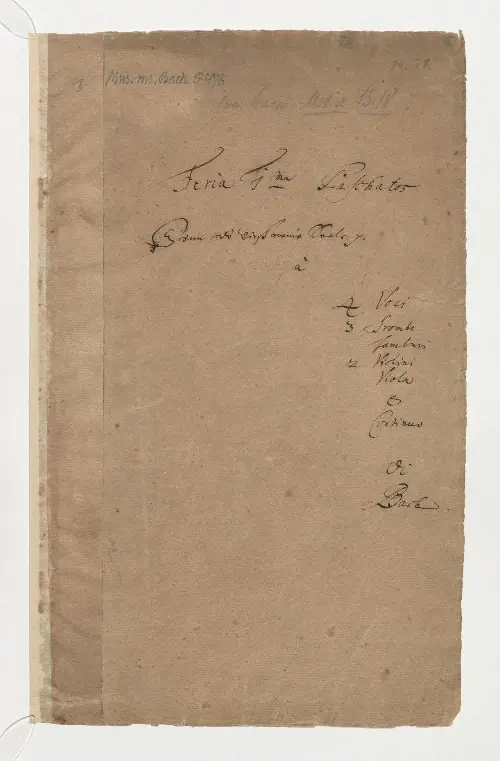 Mus. ms. Bach St 476
Feria 1 ma Paschatos
Denn du wirst meine Seele p.
à
4 Voci
3 Trombe
Tamburi
2 Violini
Viola
e
Continuo
di
Bach